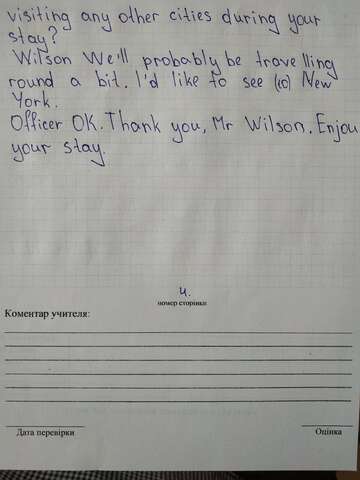 visiting any other cities during your
stay?
Wilson We'll probably be travelling
round a bit. I'd like to see (10) New
York.
Officer OK. Thank you, Mr Wilson. Enjoy
your stay.
4.
номер сторінки
Коментар учителя:
Дата перевірки
Оцінка